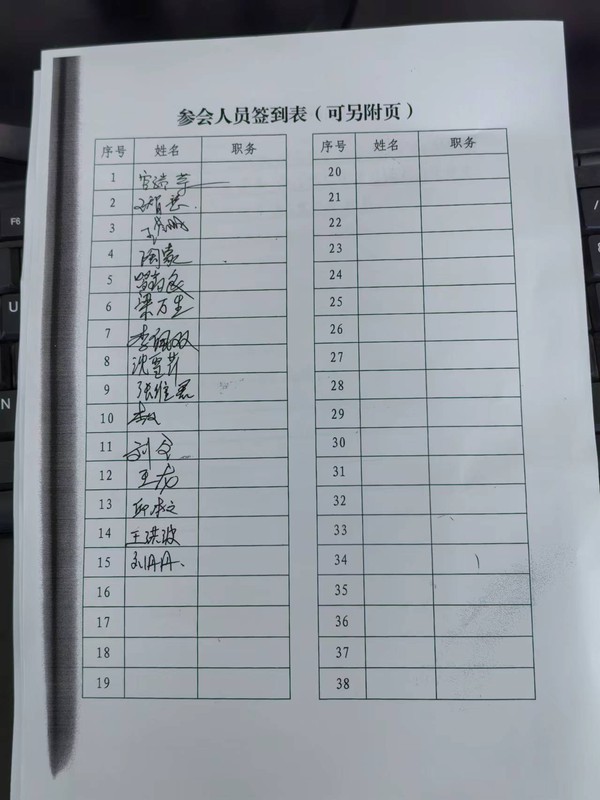 参会人员签到表（可另附页）
序号 姓名 职务
1
2
3
4 陶豪
5
6 梁万生
7 李佩双
8 沈雪芹
9 张维君
10
11 刘全
12 王龙
13 邱求文
14 王洪波
15
16
17
18
19
序号 姓名 职务
20
21
22
23
24
25
26
27
28
29
30
31
32
33
34
35
36
37
38
F6
U
N